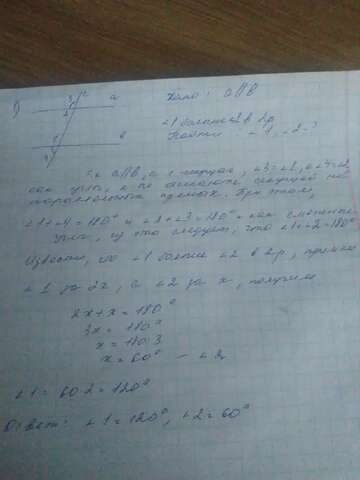 Дано: a||в
∠1 больше ∠2 в 2р
Найти ∠1, ∠2 - ?
т.к. a||в, а с - секущая, ∠3=∠1, а ∠4=∠2,
как углы, при секущей
параллельных прямых. При этом,
∠1+∠4=180° и ∠2+∠3=180° - как смежные
углы, из это следует, что ∠1+∠2=180°
Известно, что ∠1 больше ∠2 в 2р, примем
∠1 за 2х, а ∠2 за х, получим
2х+х=180°
3х=180°
х=180:3
х=60° - ∠2
∠1=60·2=120°
Ответ: ∠1=120°, ∠2=60°